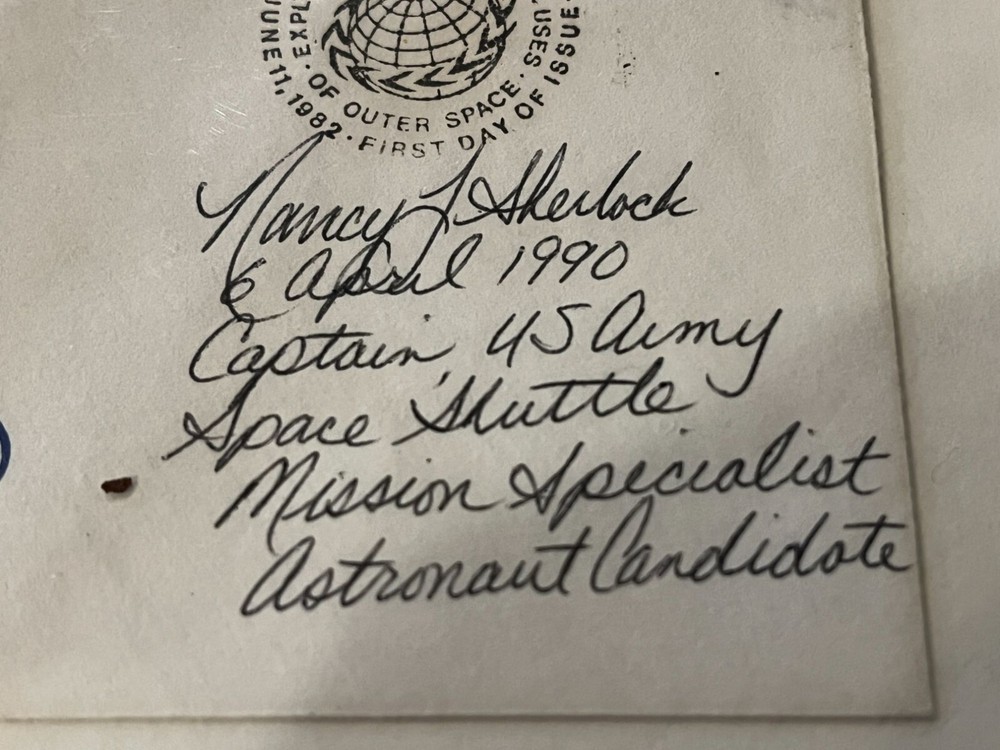 JUNE 11, 1982 · FIRST DAY OF ISSUE
EXPL
· OF OUTER SPACE ·
USES
Nancy J Sherlock
6 April 1990
Captain, US Army
Space Shuttle
Mission Specialist
Astronaut Candidate